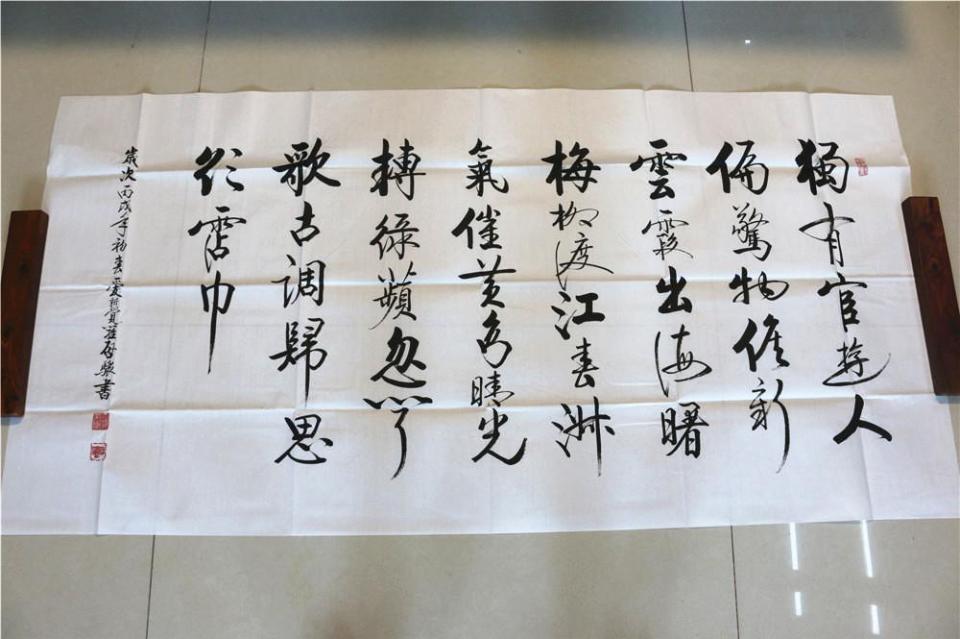 獨有宦遊人
偏驚物候新
雲霞出海曙
梅柳渡江春淑
氣催黃鳥晴光
轉綠蘋忽聞
歌古调歸思
欲霑巾
歲次丙戌年初春書